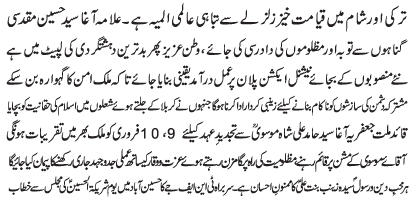 ترکی اور شام میں قیامت خیز زلزلے سے تباہی عالمی المیہ ہے۔ علامہ آغا سید حسین مقدسی
گناہوں سے توبہ اور مظلوموں کی دادرسی کی جائے، وطن عزیز پھر بدترین دہشتگردی کی لپیٹ میں ہے
نئے منصوبوں کے بجائے نیشنل ایکشن پلان پر عمل درآمد یقینی بنایا جائے تاکہ ملک امن کا گہوارہ بن سکے
مشترکہ دشمن کی سازشوں کو ناکام بنانے کیلئے زینبی کردار ادا کرنا ہوگا جنہوں نے کربلا کے جلتے ہوئے شعلوں میں اسلام کی حقانیت کو بچایا
قائد ملت جعفریہ آغا سید حامد علی شاہ موسویؒ سے تجدید عہد کیلئے 9، 10 فروری کو ملک بھر میں تقریبات ہونگی
آقائے موسوی کے مشن پر قائم رہتے مظلومیت کی راہ پر گامزن رہتے ہوئے عزت و وقار کیساتھ عملی جدوجہد جاری رکھنے کا پیمان کیا جائیگا
ہر محب دین و رسولؐ سیدہ زینب بنت علیؑ کا ممنون احسان ہے۔ سربراہ ٹی این ایف جے کا حسین آباد میں یوم شریکۃ الحسینؑ کی مجلس سے خطاب